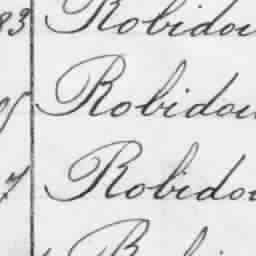 83 Robidou
Robidou
7 Robidou